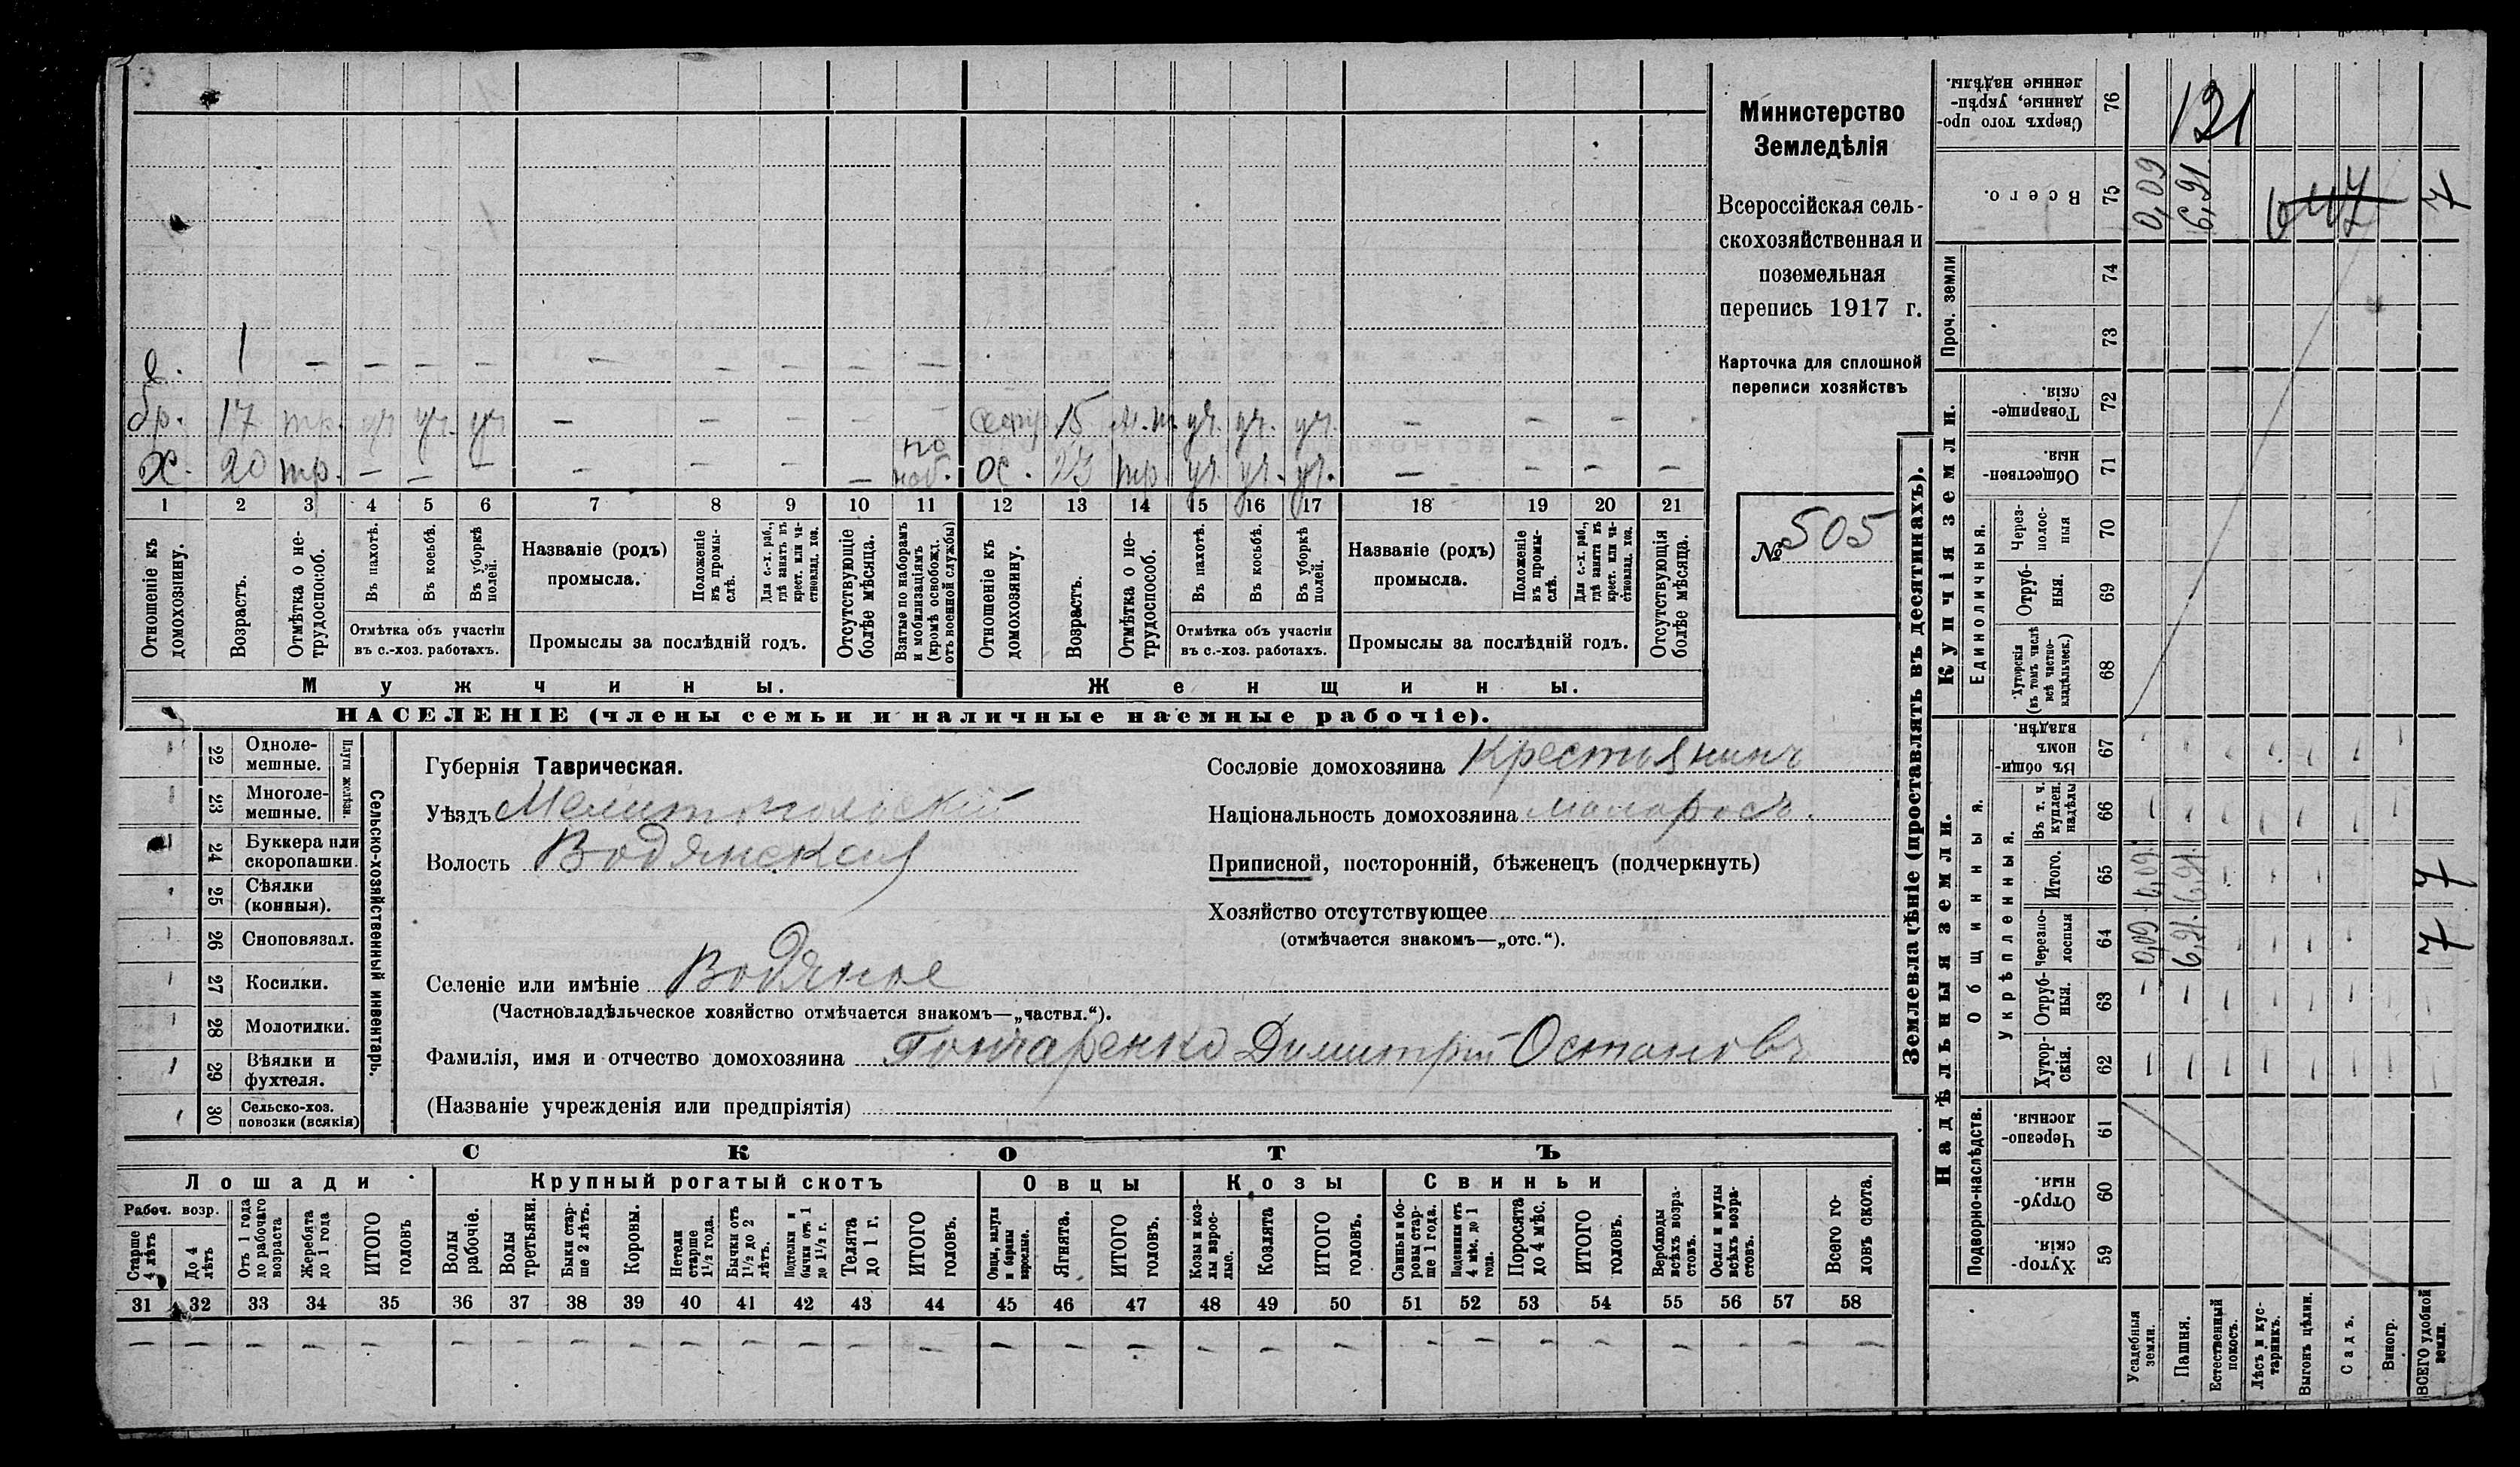 с. 1 – – – – – – – – –
бр. 17 тр. уч уч. уч – – – – – сестр 15 м.т. уч. уч. уч. – – – –
х. 20 тр. – – – – – – – по моб. ох. 23 тр. уч. уч. уч. – – – –
1 2 3 4 5 6 7 8 9 10 11 12 13 14 15 16 17 18 19 20 21
Отношеніе къ домохозяину.
Возрастъ.
Отмѣтка о не-
трудоспособ.
Въ пахотѣ.
Въ косьбѣ.
Въ уборкѣ полей.
Отмѣтка объ участіи
въ с.-хоз. работахъ.
Названіе (родъ)
промысла.
Положеніе
въ промы-
слѣ.
Для с.-х. раб.,
гдѣ занятъ въ
крест. или ча-
стновлад. хоз.
Промыслы за послѣдній годъ.
Отсутствующіе
болѣе мѣсяца.
Взятые по наборамъ
и мобилизаціямъ
(кромѣ освобожд.
отъ военной службы)
Отношеніе къ
домохозяину.
Возрастъ.
Отмѣтка о не-
трудоспособ.
Въ пахотѣ.
Въ косьбѣ.
Въ уборкѣ
полей.
Отмѣтка объ участіи
въ с.-хоз. работахъ.
Названіе (родъ)
промысла.
Положеніе
въ промы-
слѣ.
Для с.-х. раб.,
гдѣ занята въ
крест. или ча-
стновлад. хоз.
Промыслы за послѣдній годъ.
Отсутствующія
болѣе мѣсяца.
Мужчины.
Женщины.
НАСЕЛЕНІЕ (члены семьи и наличные наемные рабочіе).
Министерство
Земледѣлія
Всероссійская сель-
скохозяйственная и
поземельная
перепись 1917 г.
Карточка для сплошной
переписи хозяйствъ
№ 505
22 Одноле-
мешные.
23 Многоле-
мешные.
Плуги желѣзн.
24 Буккера или
скоропашки.
25 Сѣялки
(конныя).
26 Сноповязал.
27 Косилки.
28 Молотилки.
29 Вѣялки и
фухтеля.
30 Сельско-хоз.
повозки (всякія)
Сельско-хозяйственный инвентарь.
Губернія Таврическая.
Уѣздъ Мелитопольскій
Волость Водянская
Селеніе или имѣніе Водяное
(Частновладѣльческое хозяйство отмѣчается знакомъ—„частвл.“).
Фамилія, имя и отчество домохозяина Гончаренко Димитрій Остаповъ
(Названіе учрежденія или предпріятія)
Сословіе домохозяина Крестьянинъ
Національность домохозяина малоросъ.
Приписной, посторонній, бѣженецъ (подчеркнуть)
Хозяйство отсутствующее
(отмѣчается знакомъ—„отс.“).
СКОТЪ
Лошади
Крупный рогатый скотъ
Овцы
Козы
Свиньи
Рабоч. возр.
Старше
4 лѣтъ
До 4
лѣтъ
Отъ 1 года
до рабочаго
возраста
Жеребята
до 1 года
ИТОГО
головъ
Волы
рабочіе.
Волы
третьяки.
Быки стар-
ше 2 лѣтъ.
Коровы.
Нетели
старше
1½ года.
Бычки отъ
1½ до 2
лѣтъ.
Подтелки и
бычки отъ 1
до 1½ г.
Телята
до 1 г.
ИТОГО
головъ.
Овцы, валухи
и бараны
взрослые.
Ягнята.
ИТОГО
головъ.
Козы и коз-
лы взрос-
лые.
Козлята
ИТОГО
головъ.
Свиньи и бо-
ровы стар-
ше 1 года.
Подсвинки отъ
4 мѣс. до 1
года.
Поросята
до 4 мѣс.
ИТОГО
головъ.
Верблюды
всѣхъ возра-
стовъ.
Ослы и мулы
всѣхъ возра-
стовъ.
Всего го-
ловъ скота.
31 32 33 34 35 36 37 38 39 40 41 42 43 44 45 46 47 48 49 50 51 52 53 54 55 56 57 58
– – – – – – – – – – – – – – – – – – – – – – – – – – – –
Землевладѣніе (проставлять въ десятинахъ).
Надѣльныя земли.
Купчія земли.
Проч. земли
Сверхъ того про-
данные, укрѣп-
ленные надѣлы.
76
121
Всего.
75
0,09
6,91
7
74
73
Товарище-
скія.
72
Обществен-
ныя.
71
Единоличныя.
Через-
полос-
ныя
70
Отруб-
ныя.
69
Хуторскія
(въ томъ числѣ
всѣ частно-
владѣльческ.)
68
Общинныя.
Въ общи-
номъ
владѣн.
67
Укрѣпленныя.
Въ т. ч.
куплен.
надѣлы
66
Итого.
65
0,09
6,91
7
Черезпо-
лосныя
64
0,09
6,91
7
Отруб-
ныя.
63
Хутор-
скія.
62
Подворно-наслѣдств.
Черезпо-
лосныя.
61
Отруб-
ныя.
60
Хутор-
скія.
59
Усадебныя
земли.
Пашня.
Естественный
покосъ.
Лѣсъ и кус-
тарникъ.
Выгонъ цѣлин.
Садъ.
Виногр.
ВСЕГО удобной
земли.